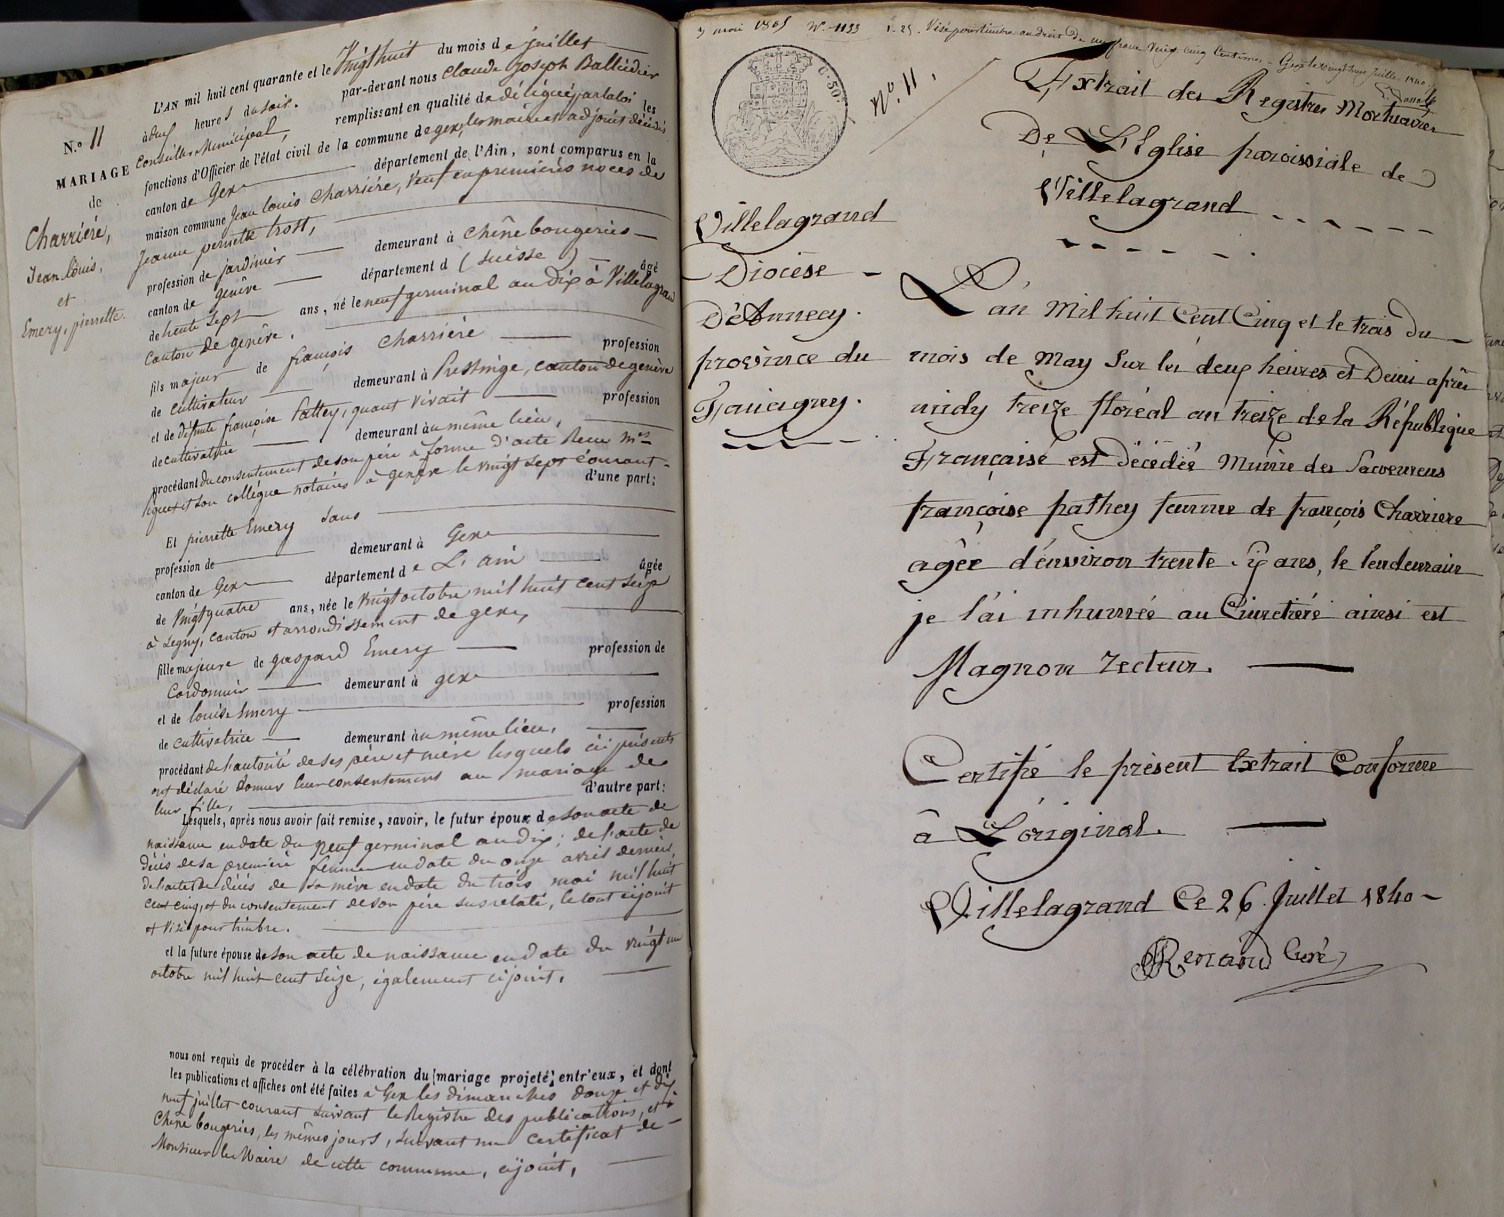 N.º 11
MARIAGE
de
Charriére,
Jean Louis,
et
Emery, pierrette.
L'AN mil huit cent quarante et le Vingt huit du mois de juillet
à heures du soir. par-devant nous Claude Joseph Balleidier
Conseiller Municipal, remplissant en qualité de délégué par la loi les
fonctions d'Officier de l'état civil de la commune de gex, les maire et adjoint décédés
canton de Gex département de l'Ain, sont comparus en la
maison commune Jean Louis Charriére, Veuf en premières noces de
Jeanne pernette trott,
profession de jardinier demeurant à Chêne bougeries
canton de Genève département d (Suisse) âgé
de trente sept ans, né le neuf germinal an Dix à Villelagrand
Canton de genève.
fils majeur de françois Charriére profession
de Cultivateur demeurant à Presinge, canton de genève
et de défunte françoise Pattey, quant Vivait profession
de cultivatrice demeurant au même lieu,
procédant du consentement de son père à forme d'acte Reçu Mes
et son collègue notaires à genève le vingt sept courant
d'une part;
Et pierrette Emery Sans
profession de demeurant à Gex
canton de Gex département de L'ain âgée
de Vingt quatre ans, née le vingt octobre mil huit cent seize
à Segny, canton et arrondissement de gex,
fille majeure de gaspard Emery profession de
Cordonnier demeurant à gex
et de louise Emery profession
de cultivatrice demeurant au même lieu,
procédant de l'autorité de ses père et mère lesquels ici présents
ont déclaré donner leur consentement au mariage de
leur fille, d'autre part;
Lesquels, après nous avoir fait remise, savoir, le futur époux de son acte de
naissance en date du neuf germinal an dix; de l'acte de
décès de sa première femme en date du onze avril dernier,
de l'acte de décès de sa mère en date du trois mai mil huit
cent cinq, et du consentement de son père susrelaté, le tout cijoint
et Visé pour timbre.
et la future épouse de son acte de naissance en date du vingt un
octobre mil huit cent Seize, également cijoint,
nous ont requis de procéder à la célébration du mariage projeté entr'eux, et dont
les publications et affiches ont été faites à Gex les dimanches douze et dix
neuf juillet courant suivant le Registre des publications, et à
Chêne bougeries, les mêmes jours, suivant un certificat de
Monsieur le Maire de cette commune, cijoint,
3 mai 1805 Nº 1133 Visé pour timbre au Droit de un franc Vingt cinq Centimes - Gex le vingt huit Juillet 1840
Nº. 11.
Extrait des Registres Mortuaires
De L'Eglise paroissiale de
Villelagrand
Villelagrand
Diocèse
D'Annecy.
province du
Faucigny.
L'an Mil huit Cent Cinq et le trois du
mois de May Sur les deux heures et Demi après
midy treize floréal an treize de la République
Française est Décédée Munie des Sacremens
françoise pathey femme de françois Charriere
agée d'environ trente six ans, le lendemain
je l'ai inhumée au Cimetiére ainsi est
Magnon Recteur.
Certifié le présent Extrait Conforme
à L'original.
Villelagrand Ce 26 Juillet 1840
Renand Curé